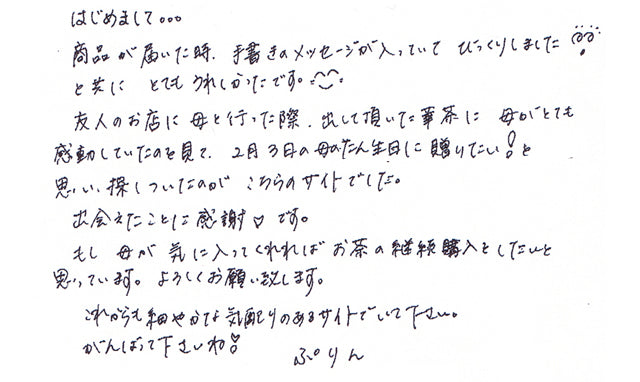 はじめまして。。。
商品が届いた時、手書きのメッセージが入っていて びっくりしました
と共に とてもうれしかったです。
友人のお店に 母と行った際、出して頂いた華茶に 母がとても
感動していたのを見て、2月3日の母のたん生日に贈りたい!と
思い、探しついたのが こちらのサイトでした。
出会えたことに感謝♡です。
もし 母が 気に入ってくれれば お茶の継続購入をしたいと
思っています。よろしくお願い致します。
これからも細やかな気配りのあるサイトでいて下さい。
がんばって下さいね!
ぷりん